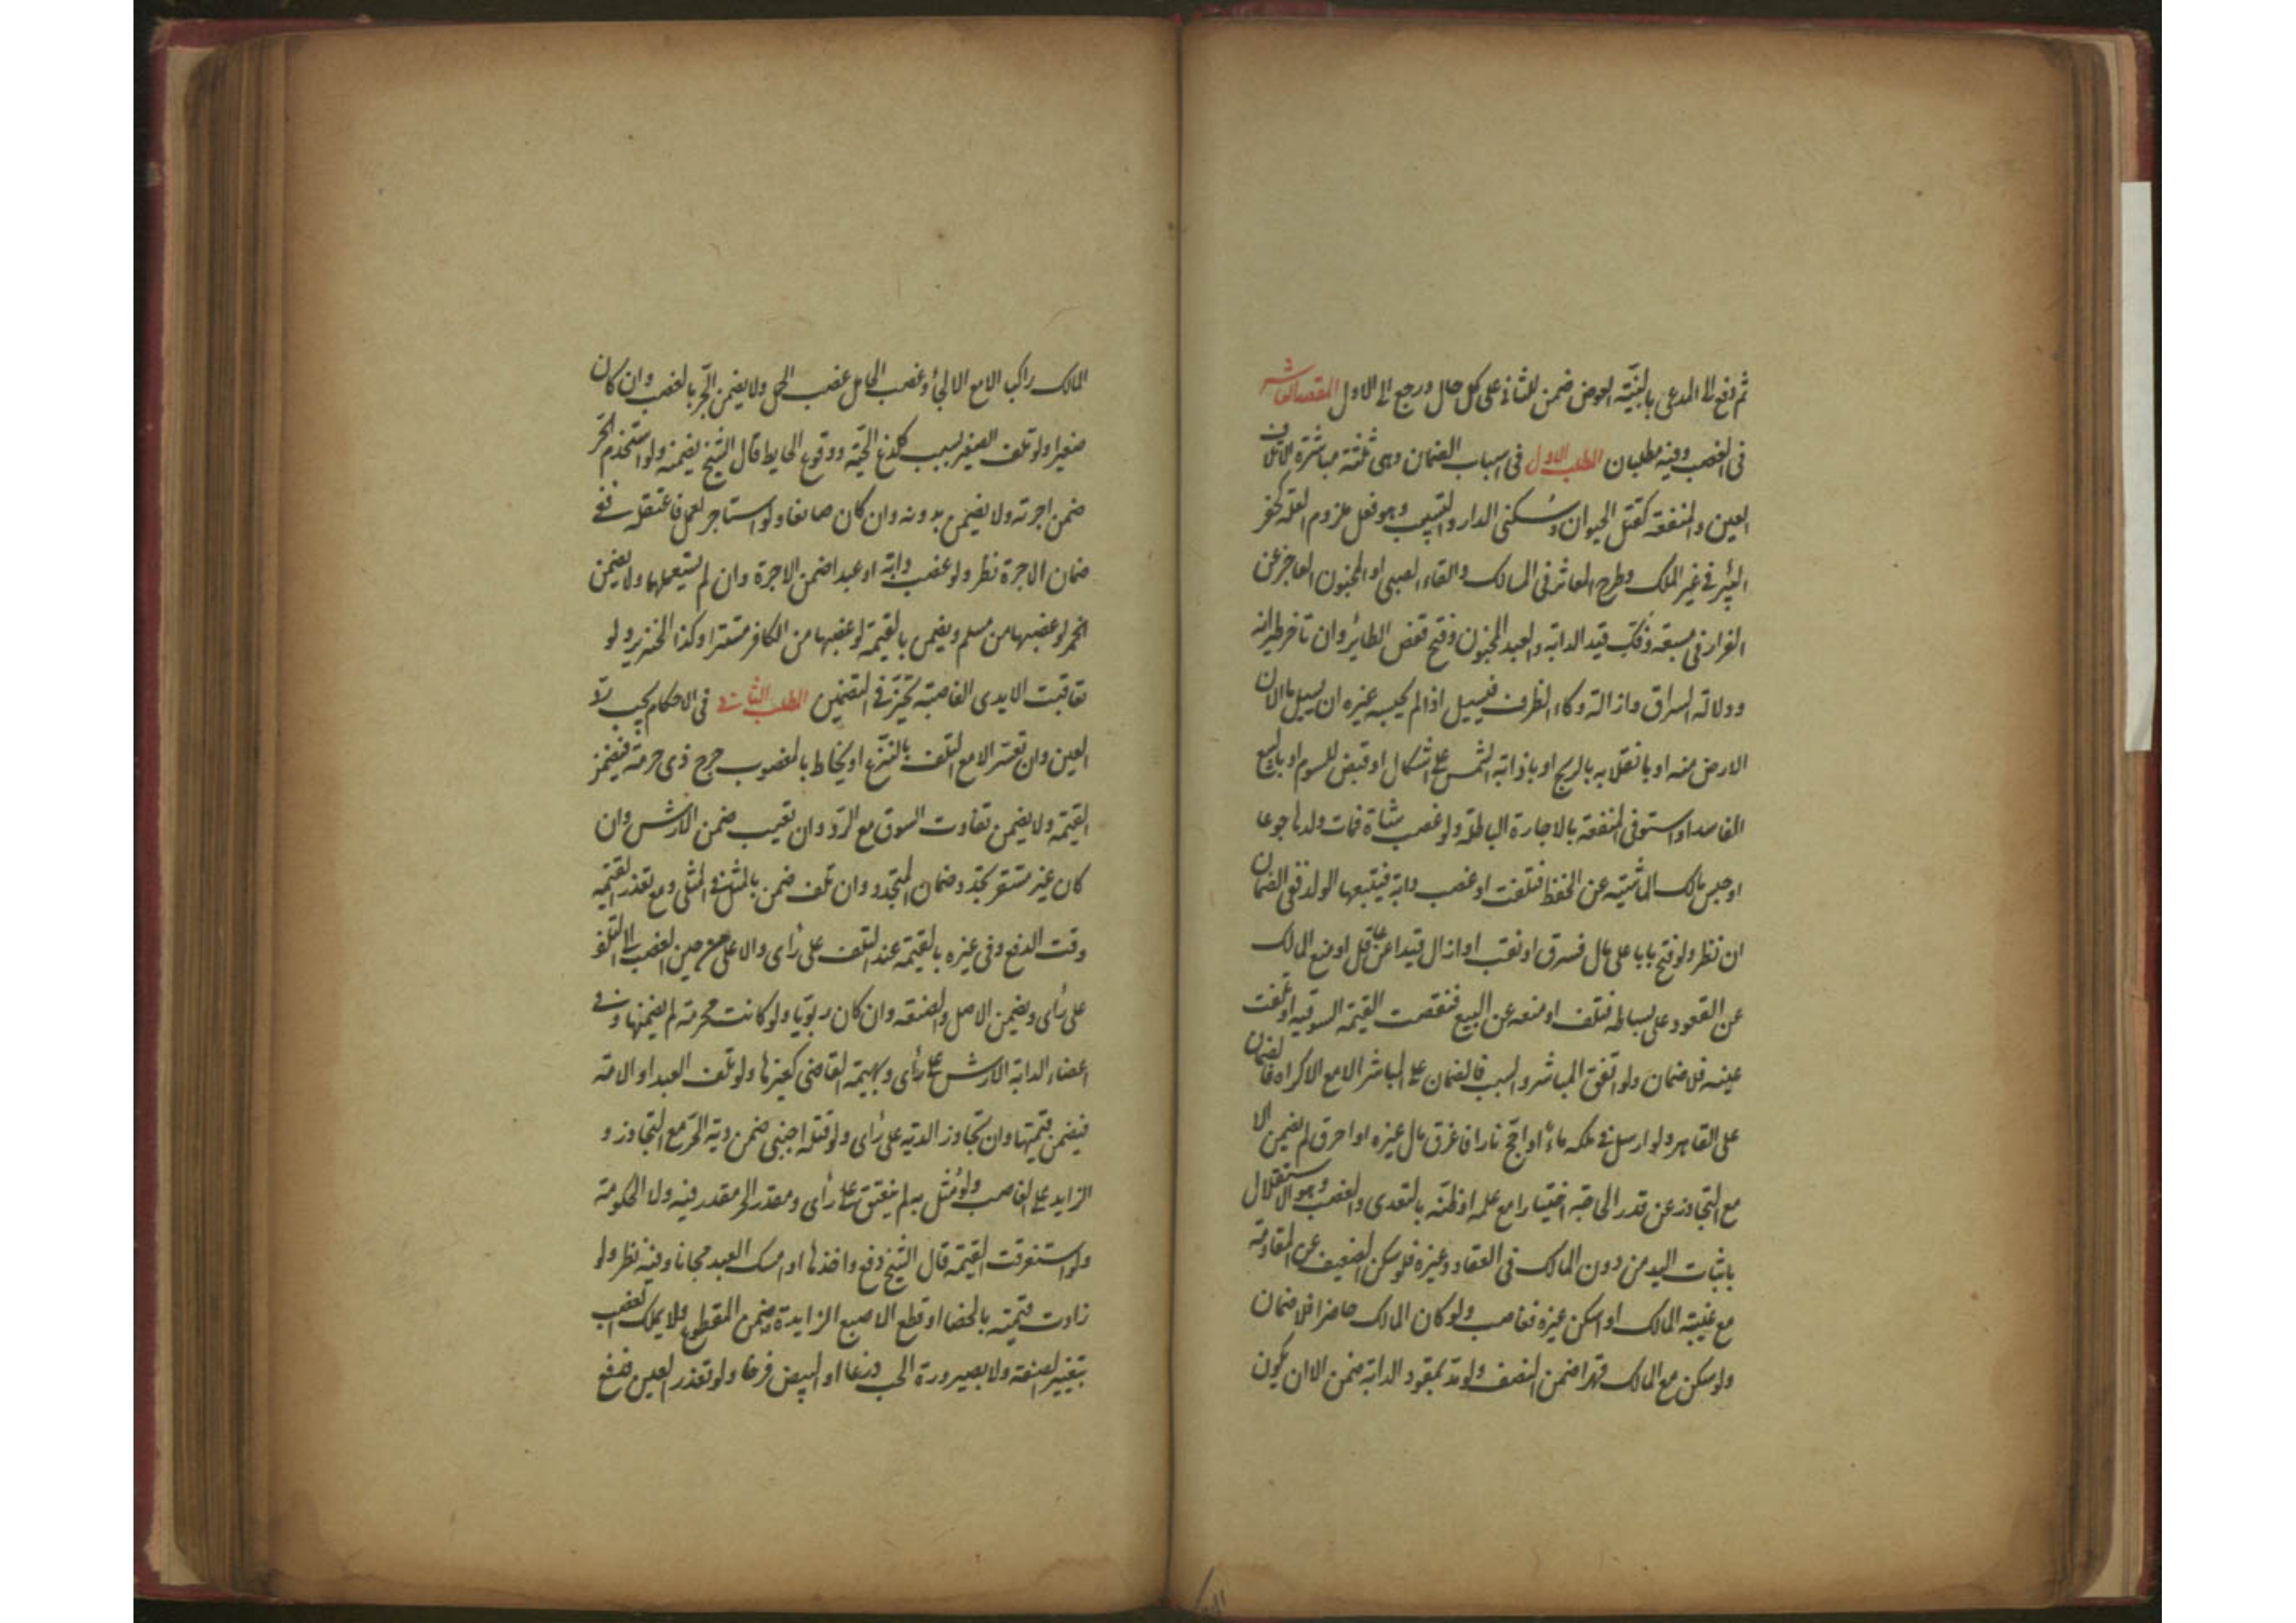 ثم دفع الى المدعى بالبينة العوض ضمن للثانى على كل حال ورجع الى الاول المقصد العاشر
فى الغصب وفيه مطلبان المطلب الاول فى اسباب الضمان وهى ثلثة مباشرة الاتلاف
العين والمنفعة كقتل الحيوان وسكنى الدار والتسبيب وهو فعل ملزوم العلة كحفر
البئر فى غير الملك وطرح المعاثر فى المسالك والقاء الصبى او المجنون العاجز عن
الفرار فى مسبعة وفك قيد الدابة والعبد المجنون وفتح قفص الطائر وان تاخر طيرانه
ودلالة السراق وازالة وكاء الظرف فيسيل اذا لم يحبسه غيره ان يسيل بالان
الارض منه او بانقلابه بالريح او باذابة الشمس على اشكال او قبض للسوم او بالبيع
الفاسد او استوفى المنفعة بالاجارة الباطلة ولو غصب شاة فمات ولدها جوعا
او حبس مالك الماشية عن الحفظ فتلفت او غصب دابة فيتبعها الولد ففى الضمان
ان نظر ولو فتح بابا على مال فسرق او نقب او ازال قيدا عن عاقل او منع المالك
عن القعود على بساطه فتلف او منعه عن البيع فنقصت القيمة السوقية او تلفت
عينه فلا ضمان ولو اتفق المباشر والسبب فالضمان على المباشر الا مع الاكراه فالضمان
على القاهر ولو ارسل فى ملكه ماء او اجج نارا فاغرق مال غيره او احرق لم يضمن الا
مع التجاوز عن قدر الحاجة اختيارا مع علمه او ظنه بالتعدى والغصب وهو الاستقلال
باثبات اليد من دون المالك فى العقار وغيره فلو سكن الضعيف عن المقاومة
مع غيبة المالك او اسكن غيره فغاصب ولو كان المالك حاضرا فلا ضمان
ولو سكن مع المالك قهرا ضمن النصف ولو مد بمقود الدابة ضمن الا ان يكون
المالك راكبا الا مع الالجاء وغصب الحامل غصب الحمل ولا يضمن الحر بالغصب وان كان
صغيرا ولو تلف الصغير بسبب كلدغ الحية ووقوع الحايط قال الشيخ يضمنه ولو استخدم الحر
ضمن اجرته ولا يضمن بدونه وان كان صانعا ولو استاجر لعمل فاعتقله ففى
ضمان الاجرة نظر ولو غصب دابة او عبدا ضمن الاجرة وان لم يستعملها ولا يضمن
الخمر لو غصبها من مسلم ويضمن بالقيمة لو غصبها من الكافر مستترا وكذا الخنزير ولو
تعاقبت الايدى الغاصبة تخير فى التضمين المطلب الثانى فى الاحكام يجب رد
العين وان تعسر الا مع التلف بالنزع او يخاط بالمغصوب جرح ذى حرمة فيضمن
القيمة ولا يضمن تفاوت السوق مع الرد وان تعيب ضمن الارش وان
كان غير مستقر تجدد ضمان المتجدد وان تلف ضمن بالمثل فى المثلى ومع تعذر القيمة
وقت الدفع وفى غيره بالقيمة عند التلف على رأى والاعلى من حين الغصب الى التلف
على رأى ويضمن الاصل والصنعة وان كان ربويا ولو كانت محرمة لم يضمنها وفى
اعضاء الدابة الارش على رأى وبهيمة القاضى كغيرها ولو تلف العبد او الامة
فيضمن قيمتها وان تجاوز الدية على رأى ولو قتله اجنبى ضمن دية الحر مع التجاوز و
الزايد على الغاصب ولو مثل به لم ينعتق على رأى ومقدر الحر مقدر فيه ولا الحكومة
ولو استغرقت القيمة قال الشيخ دفع واخذها او امسك العبد مجانا وفيه نظر ولو
زادت قيمته بالخصا او قطع الاصبع الزايدة ضمن المقطوع ولا يملك الغصب
بتغيير الصنعة ولا بصيرورة الحب زرعا او البيض فرخا ولو تعذر العين فدفع